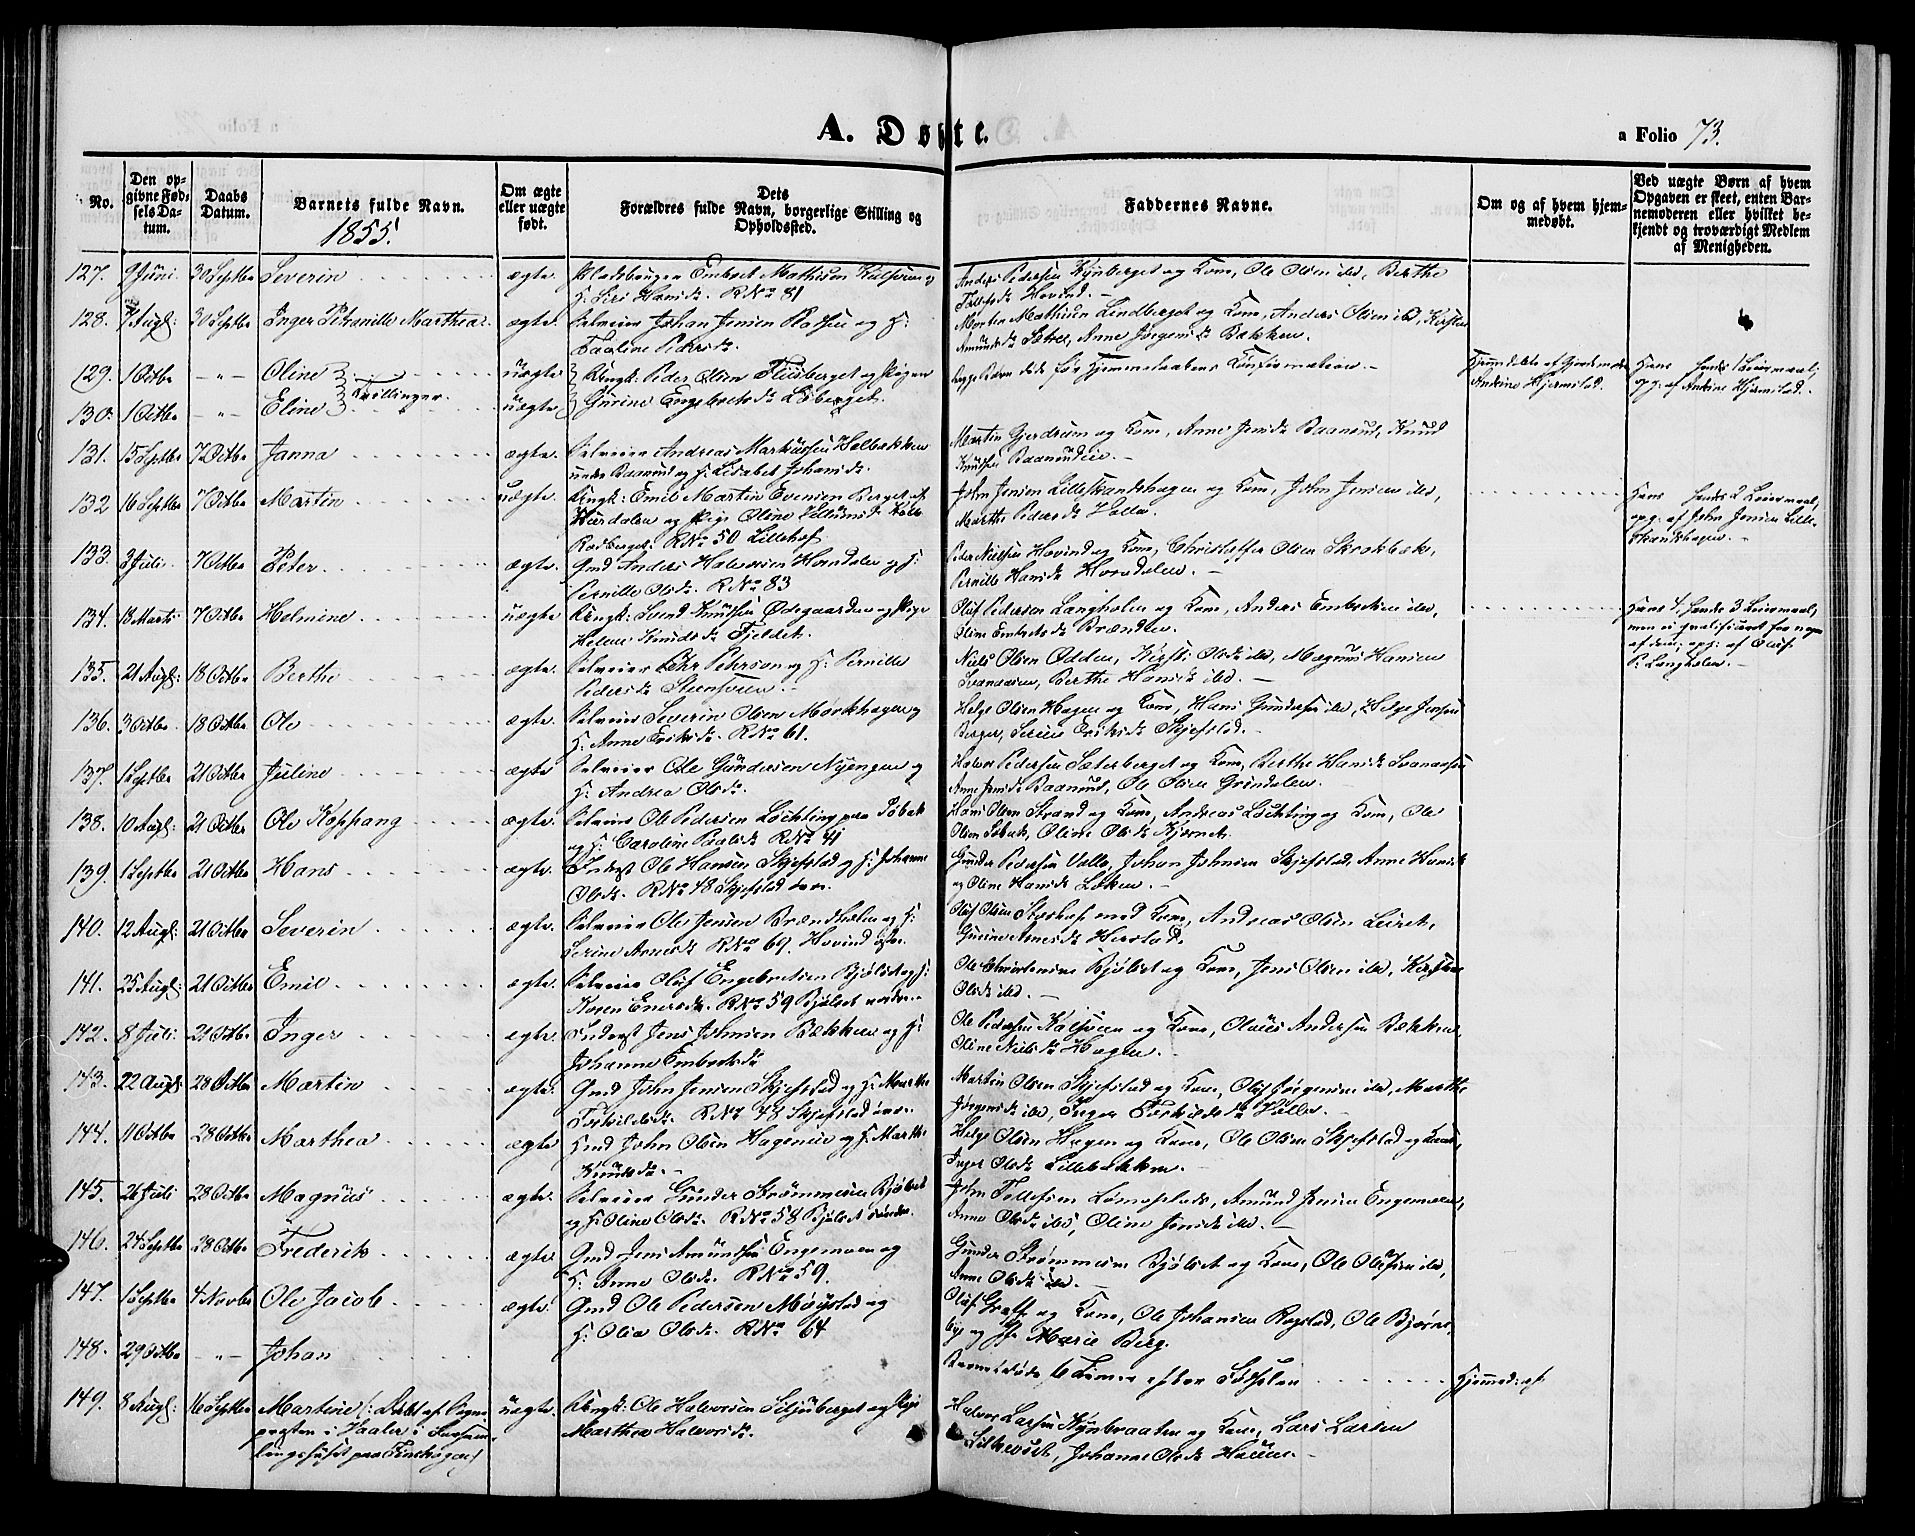 A. Døbte.
a Folio 73.
No.
Den opgivne Fødselsdatum.
Daabs Datum.
Barnets fulde Navn.
1855.
Om ægte eller uægte født.
Dets Forældres fulde Navn, borgerlige Stilling og Opholdssted.
Faddernes Navne.
Om og af hvem hjemmedøbt.
Ved uægte Børn af hvem Opgaven er skeet, enten Barnemoderen eller hvilket bekjendt og troværdigt Medlem af Menigheden.
127. 9 Juni 30 Septbr Severin ægte. Embret Mathisen Kulsveen og
H: Siri Hansd. RNo 81
Anders Pedersen Kynberget og Kone, Ole Olsen ibd, Berthe
Tollefsd Hovind. -
128. 7 Augs: 30 Septbr Inger Petronille Marthea ægte. Selveier Johan Jensen og H:
Pauline Pedersd.
Morten Mathisen Lindberget og Kone, Anders Olsen ibd, Kirsten
Amundsd Sætret, Anne Jørgensd Bækken.
129. 1 Octbr - " - Oline uægte Ungk: Peder Olsen Flisberget og Pigen
Tvillinger.
130. 1 Octbr - " - Eline uægte Gurine Engebretsd
Begge Børn døde før Hjemmedaabens Confirmation. -
Hjemmedøbte af Gjordemoder Ankine Hjermstad.
Hans hendes 1 Leiermaal; opg. af Ankine Hjermstad.
131. 15 Septbr 7 Octbr Janna ægte. Selveier Andreas Markussen Holbækken
under Baanrud og H: Lisabet Johansd.
Martin Gjerdrum og Kone, Anne Jensd Baanrud, Knud
Knudsen Baanrudeie. -
132 16 Septbr 7 Octbr Martin uægte. Ungk: Emil Martin Evensen Berget af
Hurdalen og Pige Oline
Rodberget. RNo 50 Lillehof.
John Jensen Lillestrandshagen og Kone, John Jensen ibd,
Marthe Pedersd Valler.
Hans hendes 2 Leiermaal, opg: af John Jensen Lillestrandshagen. -
133. 3 Juli 7 Octbr Peter ægte. Gmd Anders Halvorsen Horndalen og H:
Pernille Olsd. RNo 83
Peder Nielsen Hovind og Kone, Christoffer Olsen Skrukbæk,
Pernille Hansd Horndalen. -
134. 18 Marts 7 Octbr Helmine uægte Ungk: Svend Knudsen Ødegaarden og Pige
Helene Knudsd Fjeldet.
Oluf Pedersen Langholen og Kone, Anders Embretsen ibd,
Oline Embretsd Brænden.
Hans 4, hendes 3 Leiermaal, men ei qvalificeret for nogen af dem, opg: af Oluf P. Langholen. -
135. 21 Augs: 18 Octbr Berthe ægte. Selveier Pehr Pehrson og H: Pernille
Pedersd Steensveen. -
Niels Olsen Odden, Kirsti Olsd ibd, Magnus Hansen
Svanaasen, Berthe Hansd ibd. -
136. 3 Octbr 18 Octbr Ole ægte. Selveier Severin Olsen Mørkhagen og
H: Anne Eriksd. RNo 61.
Helge Olsen Hagen og Kone, Hans Gundersen ibd, Helge Jensen
Berger, Serine Eriksd Skjefstad. -
137. 1 Septbr 21 Octbr Juline ægte Selveier Ole Gundersen Nyengen og
H: Andrea Olsd.
Halvor Pedersen Sæterberget og Kone, Berthe Hansd Svanaasen
Anne Jensd Baanrud, Ole Olsen Grindalen.
138. 10 Augs: 21 Octbr Ole Koppang ægte. Selveier Ole Pedersen Løchting paa Søbak
og H: Caroline Paulsd RNo 41
Hans Olsen Strand og Kone, Andreas Løchting og Kone, Ole
Olsen Søbak, Oline Olsd Kjernet.
139. 1 Septbr 21 Octbr Hans ægte. Inderst Ole Hansen Skjefstad og H: Johanne
Olsd. RNo 48 Skjefstad
Gunder Pedersen Valler, Johan Johnsen Skjefstad, Anne Hansd
og Oline Hansd Løken. -
140. 12 Augs: 21 Octbr Severin ægte. Selveier Ole Jensen Brændholen og H:
Serine Arnesd RNo 69. Hovind østre.
Oluf Olsen Storhof med Kone, Andreas Olsen Leiret,
Gurine Arnesd Herstad.
141. 25 Augs: 21 Octbr Emil ægte. Selveier Oluf Engebretsen Bjølset og H:
Karen Enersd. RNo 59 Bjølset nordre. -
Ole Christensen Bjølset og Kone, Jens Olsen ibd, Kirstine
Olsd ibd. -
142. 8 Juli 21 Octbr Inger ægte. Inderst Jens Johnsen Bækken og H:
Johanne Embretsd
Ole Pedersen Kulsveen og Kone, Olaus Andersen Bækken,
Oline Nielsd Hagen. -
143. 22 Augs: 28 Octbr Martin ægte. Gmd John Jensen Skjefstad og H: Marthe
Torkildsd. RNo 48 Skjefstad
Martin Olsen Skjefstad og Kone, Oluf Jørgensen ibd, Marthe
Jørgensd ibd, Inger Torkildsd Valler. -
144. 11 Octbr 28 Octbr Marthea ægte Gmd John Olsen Hageneie og H: Marthe
Knudsd. -
Helge Olsen Hagen og Kone, Ole Olsen Skjefstad og Kone,
Inger Olsd Lillebækken. -
145. 26 Juli 28 Octbr Magnus ægte. Selveier Gunder Strømmesen Bjølset
og H: Oline Olsd. RNo 58 Bjølset søndre.
John Tollefsen Lømoplads, Amund Jensen Engemoen,
Anne Olsd ibd, Oline Jensd ibd. -
146. 24 Septbr 28 Octbr Frederik ægte. Gmd Jens Amundsen Engemoen og
H: Anne Olsd. RNo 59.
Gunder Strømmesen Bjølset og Kone, Ole Olufsen ibd,
Anne Olsd ibd. -
147. 1 Septbr 4 Novbr Ole Jacob ægte. Gmd Ole Pedersen Møystad og
H: Olia Olsd. RNo 64
Oluf Græff og Kone, Ole Johansen Rogstad, Ole Bjørneby og Jfr Marie Berg.
148. 29 Octbr - " - Johan
Barnet døde 6 Timer efter Fødselen
Hjemmed: af
149. 8 Augs: 16 Septbr Martine /: Døbt af Sognepresten i Vaaler i Forsamlingshuset paa Finskogen:/ uægte. Ungk: Ole Halvorsen Siljuberget og Pige
Marthea Halvorsd.
Halvor Larsen Kynbraaten og Kone, Lars Larsen
Silkeoset, Johanne Olsd Hauen. -